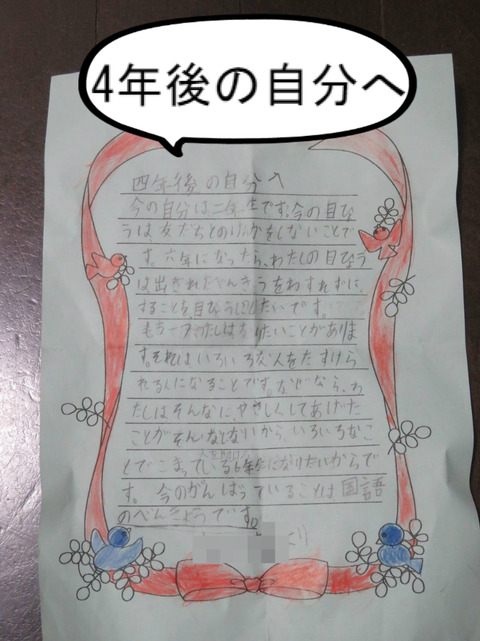 4年後の自分へ
四年後の自分へ
今の自分は二年生です。今の目ひょ
うは友だちとのけんかをしないことで
す。六年になったら、わたしの目ひょう
は出されたべんきょうをわすれずに、
することを目ひょうにしたいです。
もう一つわたしはなりたいことがありま
す。それはいろいろな人をたすけら
れる人になることです。なぜなら、わ
たしはそんなに、やさしくしてあげた
ことがそんなにないから、いろいろなこ
とでこまっている
人を助け
6年生になりたいからで
す。今のがんばっていることは国語
のべんきょうです。
より